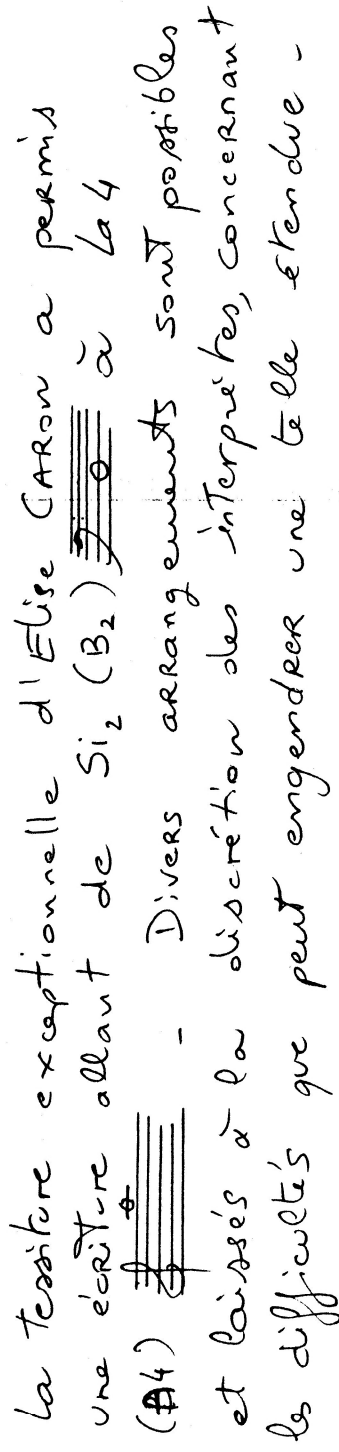 La tessiture exceptionnelle d'Elise CARON a permis
une écriture allant de Si2 (B2) à La4
(A4) - Divers arrangements sont possibles
et laissés à la discrétion des interprètes, concernant
les difficultés que peut engendrer une telle étendue -